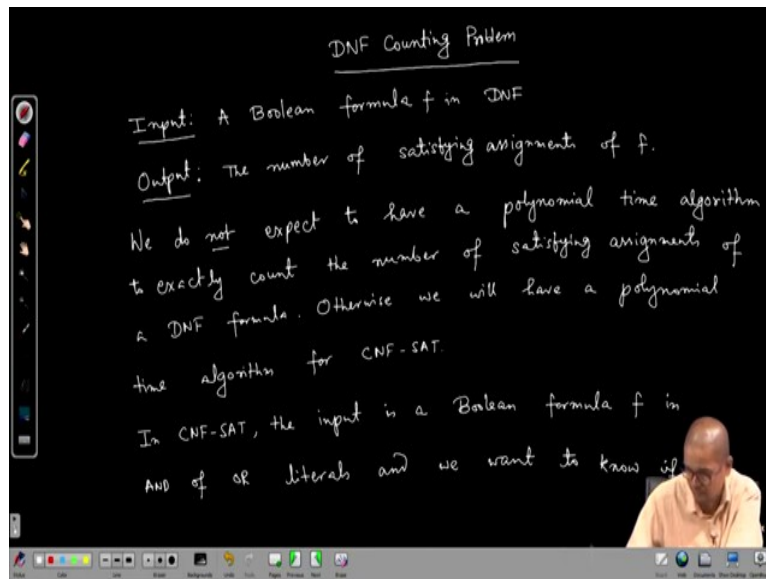 DNF Counting Problem
Input: A Boolean formula f in DNF
Output: The number of satisfying assignments of f.
We do not expect to have a polynomial time algorithm
to exactly count the number of satisfying assignments of
a DNF formula. Otherwise we will have a polynomial
time algorithm for CNF-SAT.
In CNF-SAT, the input is a Boolean formula f in
AND of OR literals and we want to know if